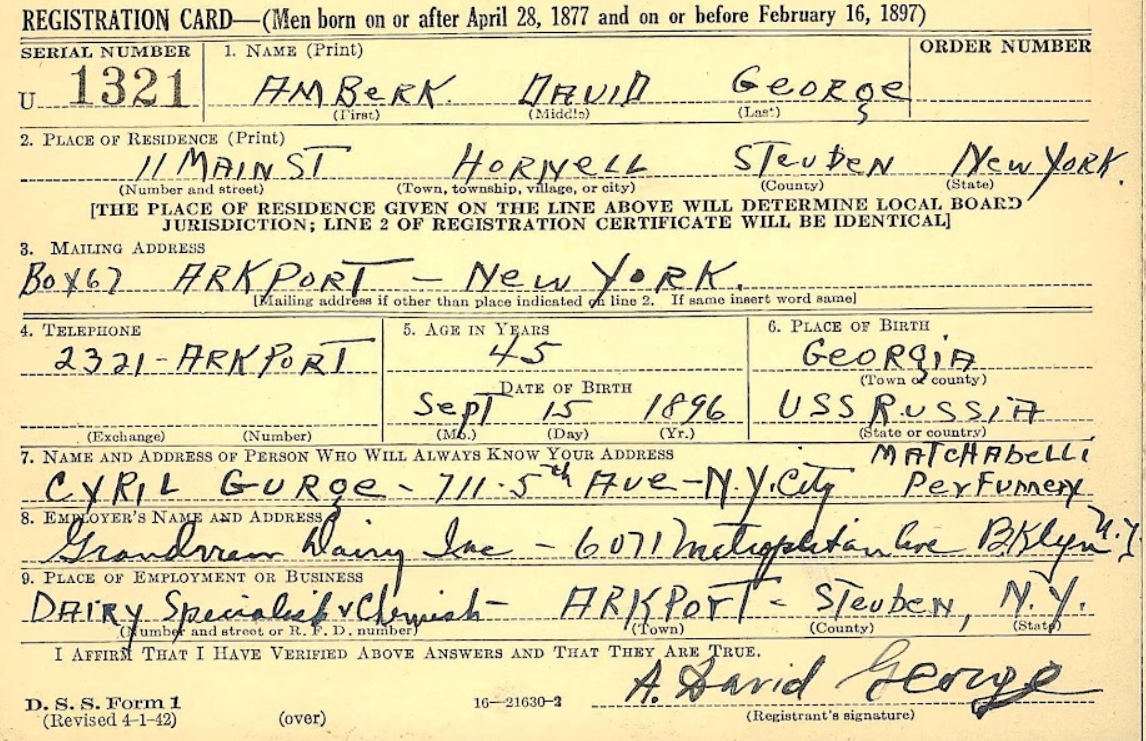 REGISTRATION CARD—(Men born on or after April 28, 1877 and on or before February 16, 1897)
SERIAL NUMBER 1. NAME (Print) ORDER NUMBER
U 1321 AMBERK DAVID GEORGE
(First) (Middle) (Last)
2. PLACE OF RESIDENCE (Print)
11 MAIN ST HORNELL STEUBEN NEW YORK.
(Number and street) (Town, township, village, or city) (County) (State)
[THE PLACE OF RESIDENCE GIVEN ON THE LINE ABOVE WILL DETERMINE LOCAL BOARD
JURISDICTION; LINE 2 OF REGISTRATION CERTIFICATE WILL BE IDENTICAL]
3. MAILING ADDRESS
BOX 67 ARKPORT - NEW YORK.
[Mailing address if other than place indicated on line 2. If same insert word same]
4. TELEPHONE 5. AGE IN YEARS 6. PLACE OF BIRTH
2321 - ARKPORT 45 GEORGIA
(Town or county)
DATE OF BIRTH
Sept 15 1896 USS RUSSIA
(Exchange) (Number) (Mo.) (Day) (Yr.) (State or country)
7. NAME AND ADDRESS OF PERSON WHO WILL ALWAYS KNOW YOUR ADDRESS MATCHABELLI
CYRIL GURGE - 711 - 5th Ave - N.Y. City PERFUMERY
8. EMPLOYER'S NAME AND ADDRESS
Grandview Dairy Inc - 6071 Metropolitan Ave BKlyn N.Y.
9. PLACE OF EMPLOYMENT OR BUSINESS
DAIRY Specialist & Chemist - ARKPORT - STEUBEN, N.Y.
(Number and street or R. F. D. number) (Town) (County) (State)
I AFFIRM THAT I HAVE VERIFIED ABOVE ANSWERS AND THAT THEY ARE TRUE.
A. David George
D. S. S. Form 1 16—21630-2
(Revised 4-1-42) (over) (Registrant's signature)